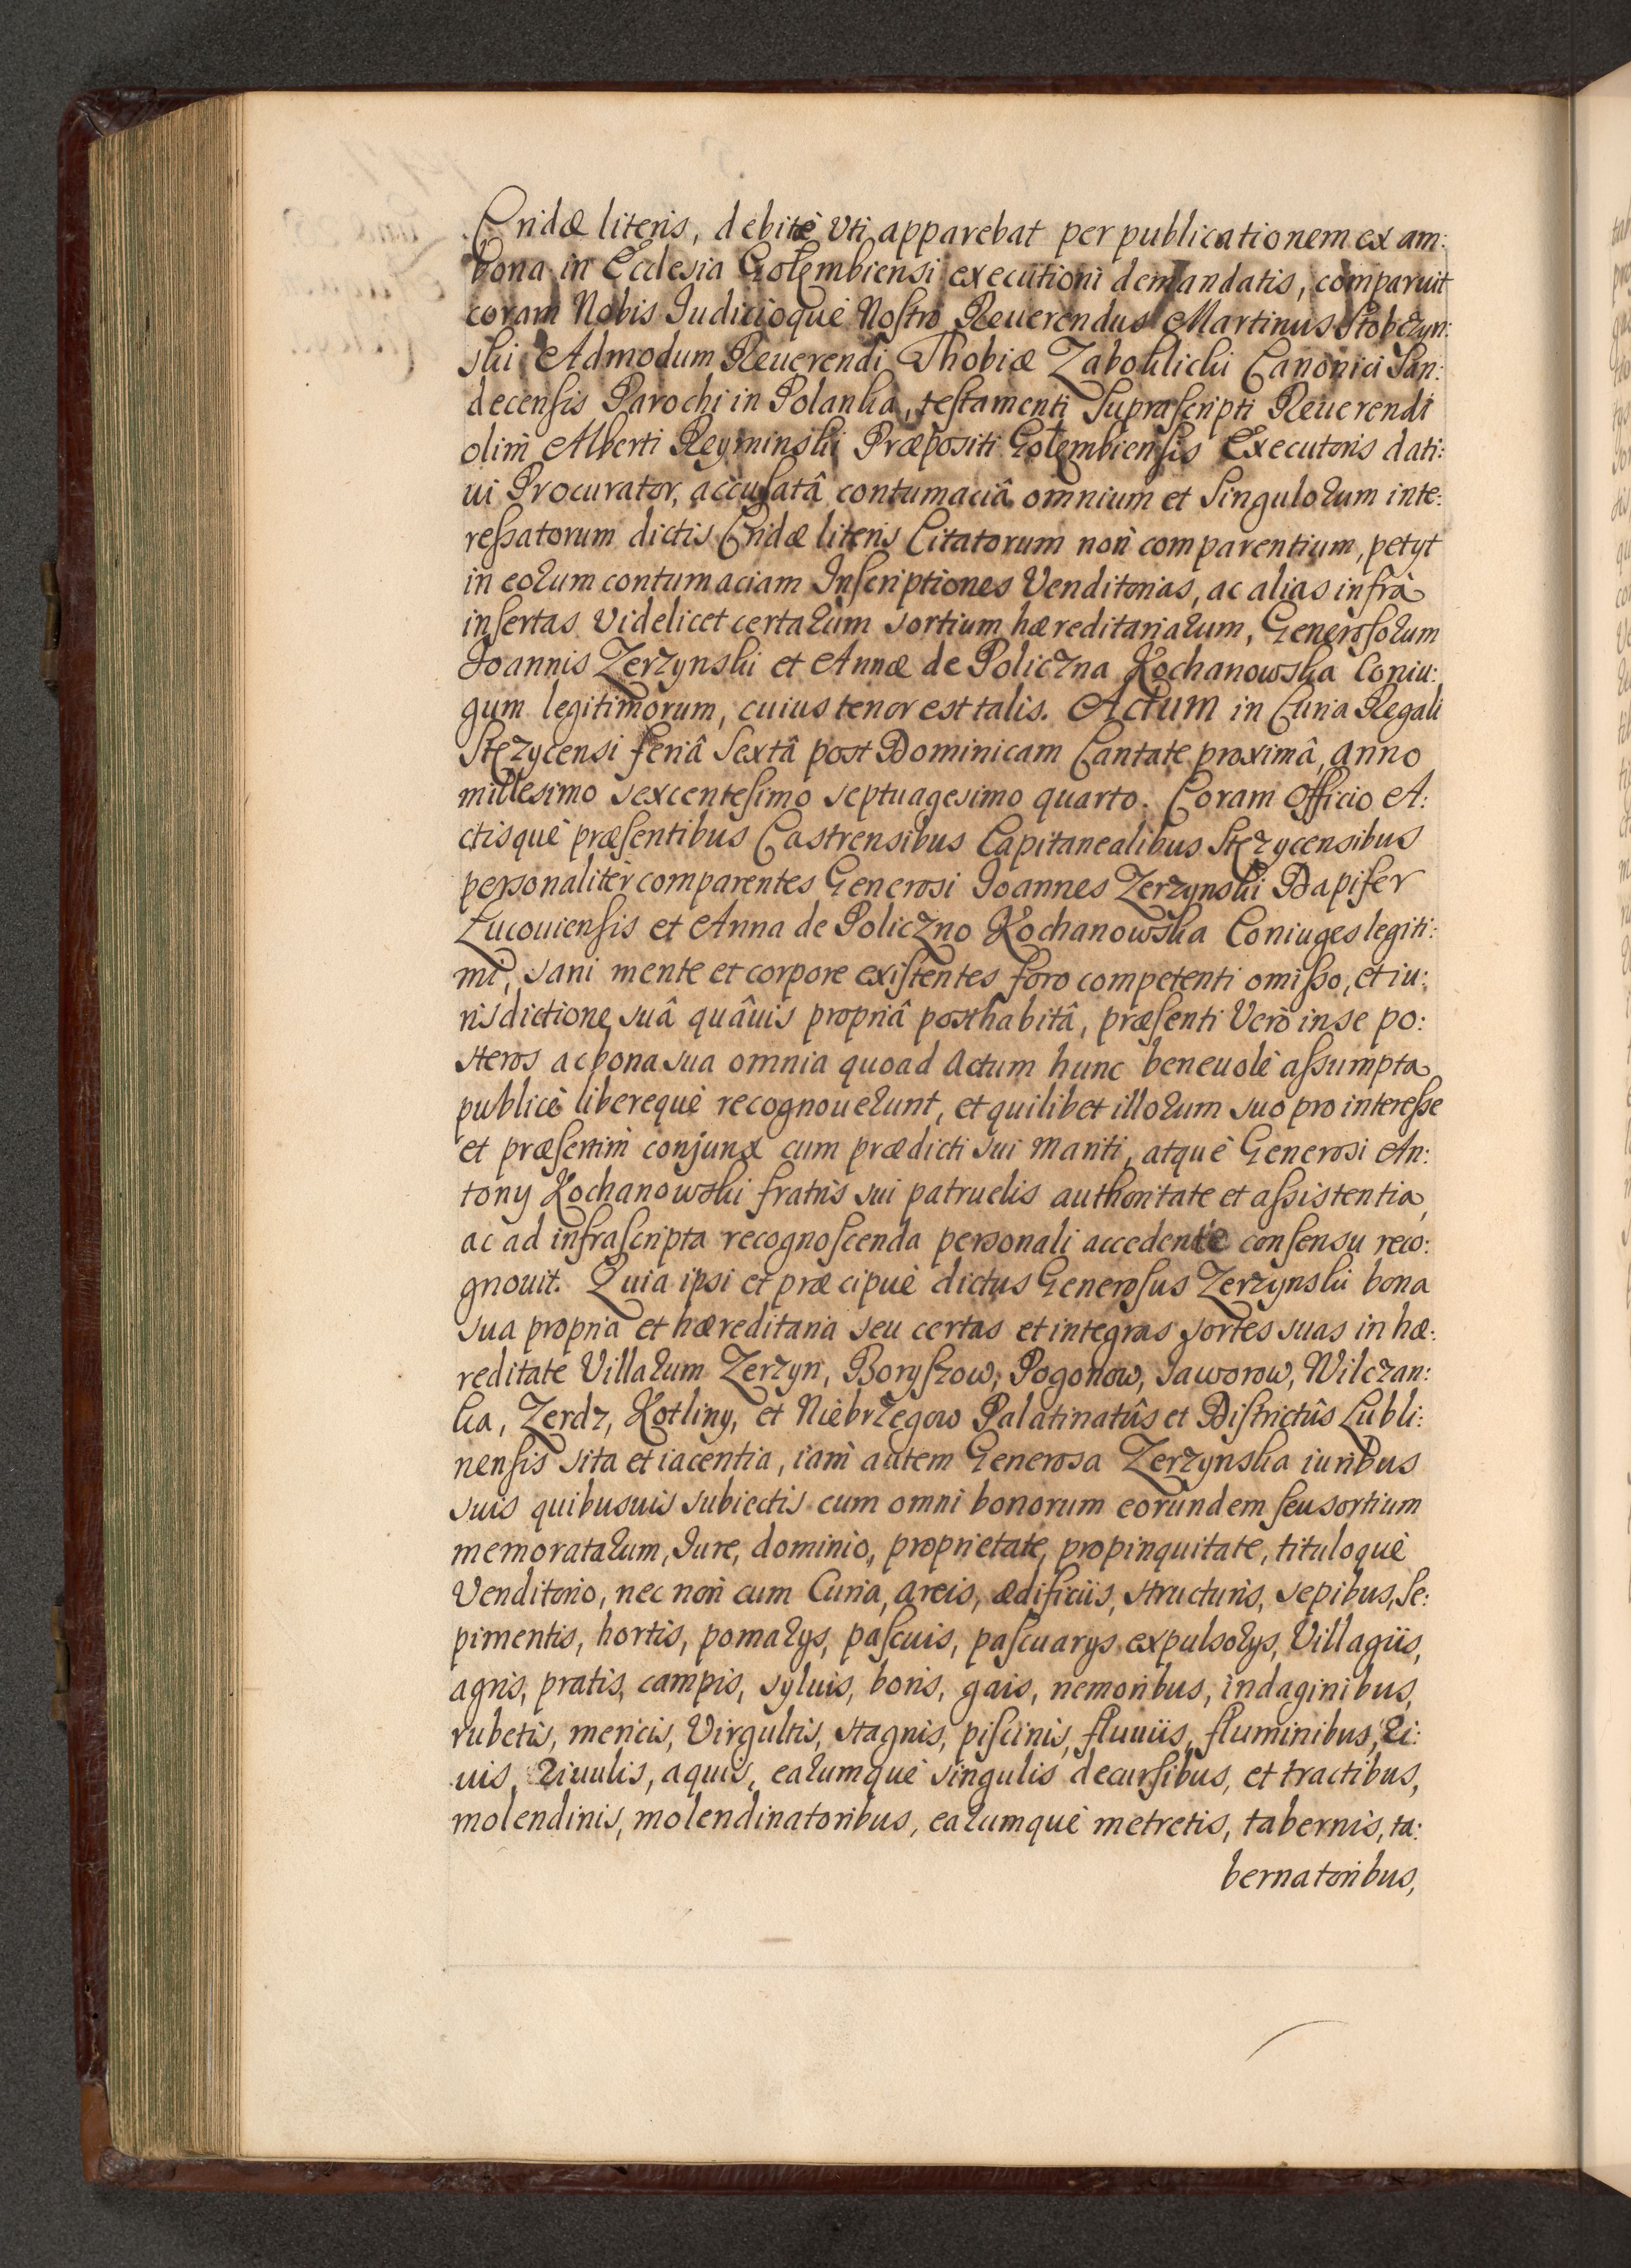 Cridæ literis, debitè Vti apparebat per publicationem ex am:
bona in Ecclesia Gołembiensi executioni demandatis, comparuit
coram Nobis Iudicioquè Nostro Reuerendus Martinus Stobczyn:
ski Admodum Reuerendi Thobiæ Zaboklicki Canonici San:
decensis Parochi in Polanka, testamenti suprascripti Reuerendi
olim Alberti Reyminski Præpositi Gołembiensis Executoris dati:
ui Procurator, accusatâ contumaciâ omnium et singulorum inte:
ressatorum dictis Cridæ literis Citatorum non comparentium, petyt
in eorum contumaciam Inscriptiones Venditorias, ac alias infrà
insertas Videlicet certarum sortium hæreditariarum, Generosorum
Ioannis Zerzynski et Annæ de Policzna Kochanowska Coniu:
gum legitimorum, cuius tenor est talis. Actum in Curia Regali
Stęzycensi feriâ sextâ post Dominicam Cantate proximâ, anno
millesimo sexcentesimo septuagesimo quarto. Coram Officio A:
ctisquè præsentibus Castrensibus Capitanealibus Stęzycensibus
personalitèr comparentes Generosi Ioannes Zerzynski Dapifer
Lucouiensis et Anna de Policzno Kochanowska Coniuges legiti:
mi, sani mente et corpore existentes foro competenti omisso, et iu:
risdictione suâ quâuis propriâ posthabitâ, præsenti Verò in se po:
steros ac bona sua omnia quoad Actum hunc beneuolè assumpta
publicè liberequè recognouerunt, et quilibet illorum suo pro interesse
et præsertim conjunx cum prædicti sui mariti, atquè Generosi An:
tony Kochanowski fratris sui patruelis authoritate et assistentia,
ac ad infrascripta recognoscenda personali accedente consensu reco:
gnouit. Quia ipsi et præcipuè dictus Generosus Zerzynski bona
sua propria et hæreditaria seu certas et integras sortes suas in hæ:
reditate Villarum Zerzyn, Boryszow, Pogonow, Jaworow, Wilczan:
ka, Zerdz, Kotliny, et Niebrzegow Palatinatûs et Districtûs Lubli:
nensis sita et iacentia, iam autem Generosa Zerzynska iuribus
suis quibusuis subiectis cum omni bonorum eorundem seu sortium
memoratarum, Iure, dominio, proprietate, propinquitate, tituloquè
Venditorio, nec non cum Curia, areis, ædificiis, structuris, sepibus, se:
pimentis, hortis, pomarys, pascuis, pascuarys expulsorys, Villagiis,
agris, pratis, campis, syluis, boris, gais, nemoribus, indaginibus,
rubetis, mericis, Virgultis, stagnis, piscinis, fluuiis, fluminibus, ri:
uis, riuulis, aquis, earumquè singulis decursibus, et tractibus,
molendinis, molendinatoribus, earumquè metretis, tabernis, ta:
bernatoribus,